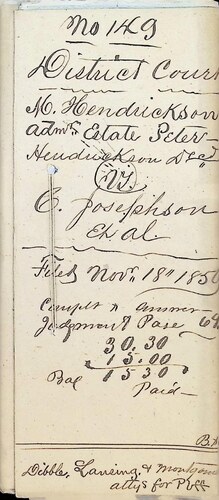 No 149
District Court
M. Hendrickson
admr. Estate Peter
Hendrickson Decd
vs
C. Josephson
Et al.
Filed Novr. 18th 185
Complt & Answer
Judgment Page 64
30.30
15.00
Bal 15 30
Paid
Dibble, Lansing, & Montgom
attys for Plff